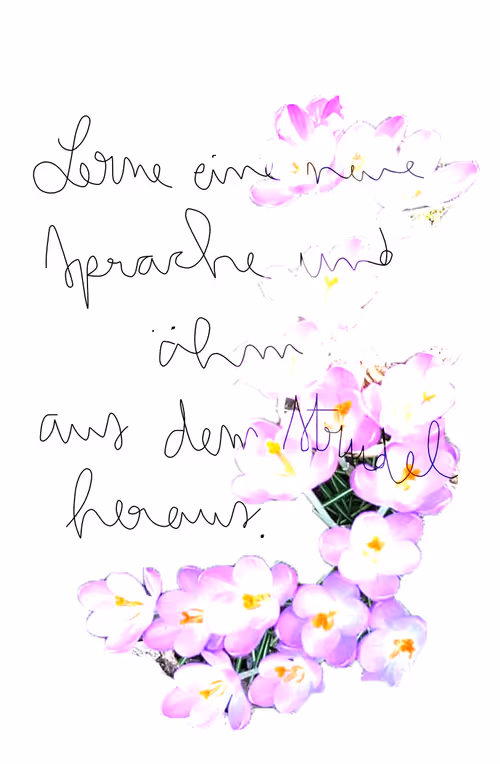 Lerne eine neue
Sprache und
ähm
aus dem Strudel
heraus.